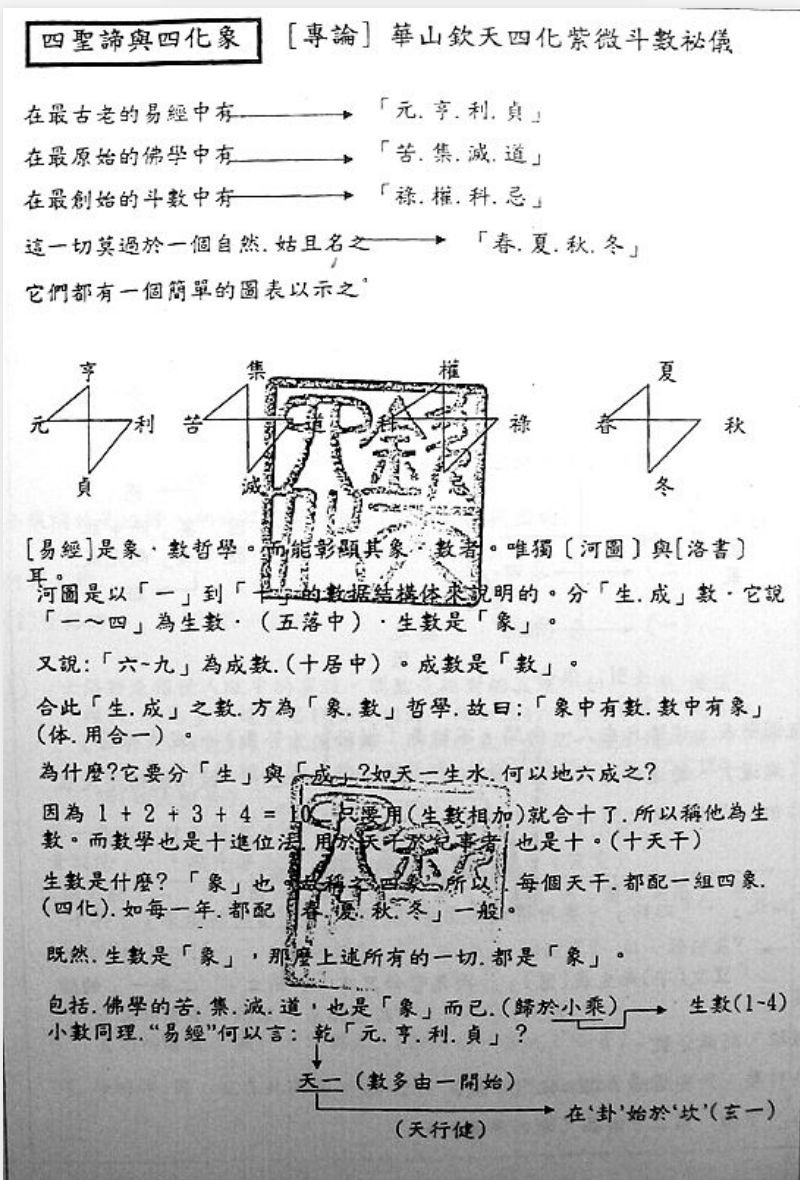 四聖諦與四化象 [專論] 華山欽天四化紫微斗數祕儀
在最古老的易經中有 「元.亨.利.貞」
在最原始的佛學中有 「苦.集.滅.道」
在最創始的斗數中有 「祿.權.科.忌」
這一切莫過於一個自然.姑且名之 「春.夏.秋.冬」
它們都有一個簡單的圖表以示之。
亨 集 權 夏
元 利 苦 道 科 祿 春 秋
貞 滅 忌 冬
[易經]是象·數哲學。而能彰顯其象·數者。唯獨〔河圖〕與[洛書]
耳。
河圖是以「一」到「十」的数据結構体來說明的。分「生.成」數·它說
「一～四」為生數·（五落中）·生數是「象」。
又說:「六~九」為成數.(十居中）。成數是「數」。
合此「生.成」之數.方為「象.數」哲學.故曰:「象中有數.數中有象」
(体.用合一）。
為什麼?它要分「生」與「成」?如天一生水.何以地六成之?
因為 1 + 2 + 3 + 4 = 10 只要用(生數相加)就合十了.所以稱他為生
數。而數學也是十進位法.用於天干於紀事者 也是十。(十天干)
生數是什麼? 「象」也 故稱之 四象 所以 .每個天干.都配一組四象.
(四化).如每一年.都配「春.憂.秋.冬」一般。
既然.生數是「象」，那麼上述所有的一切.都是「象」。
包括.佛學的苦.集.滅.道，也是「象」而已.(歸於小乘) 生數(1~4)
小數同理.“易經”何以言: 乾「元.亨.利.貞」?
天一 (數多由一開始)
在‘卦’始於‘坎’(玄一)
(天行健)